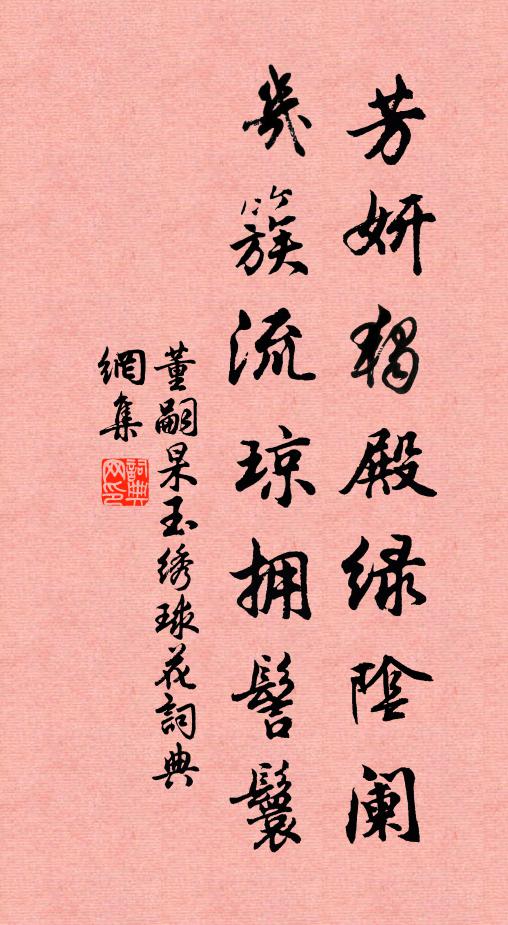 芳妍独殿绿阴阑
几簇流琼拥髻鬟
董嗣杲玉绣球花詞典
網集
詞典网印